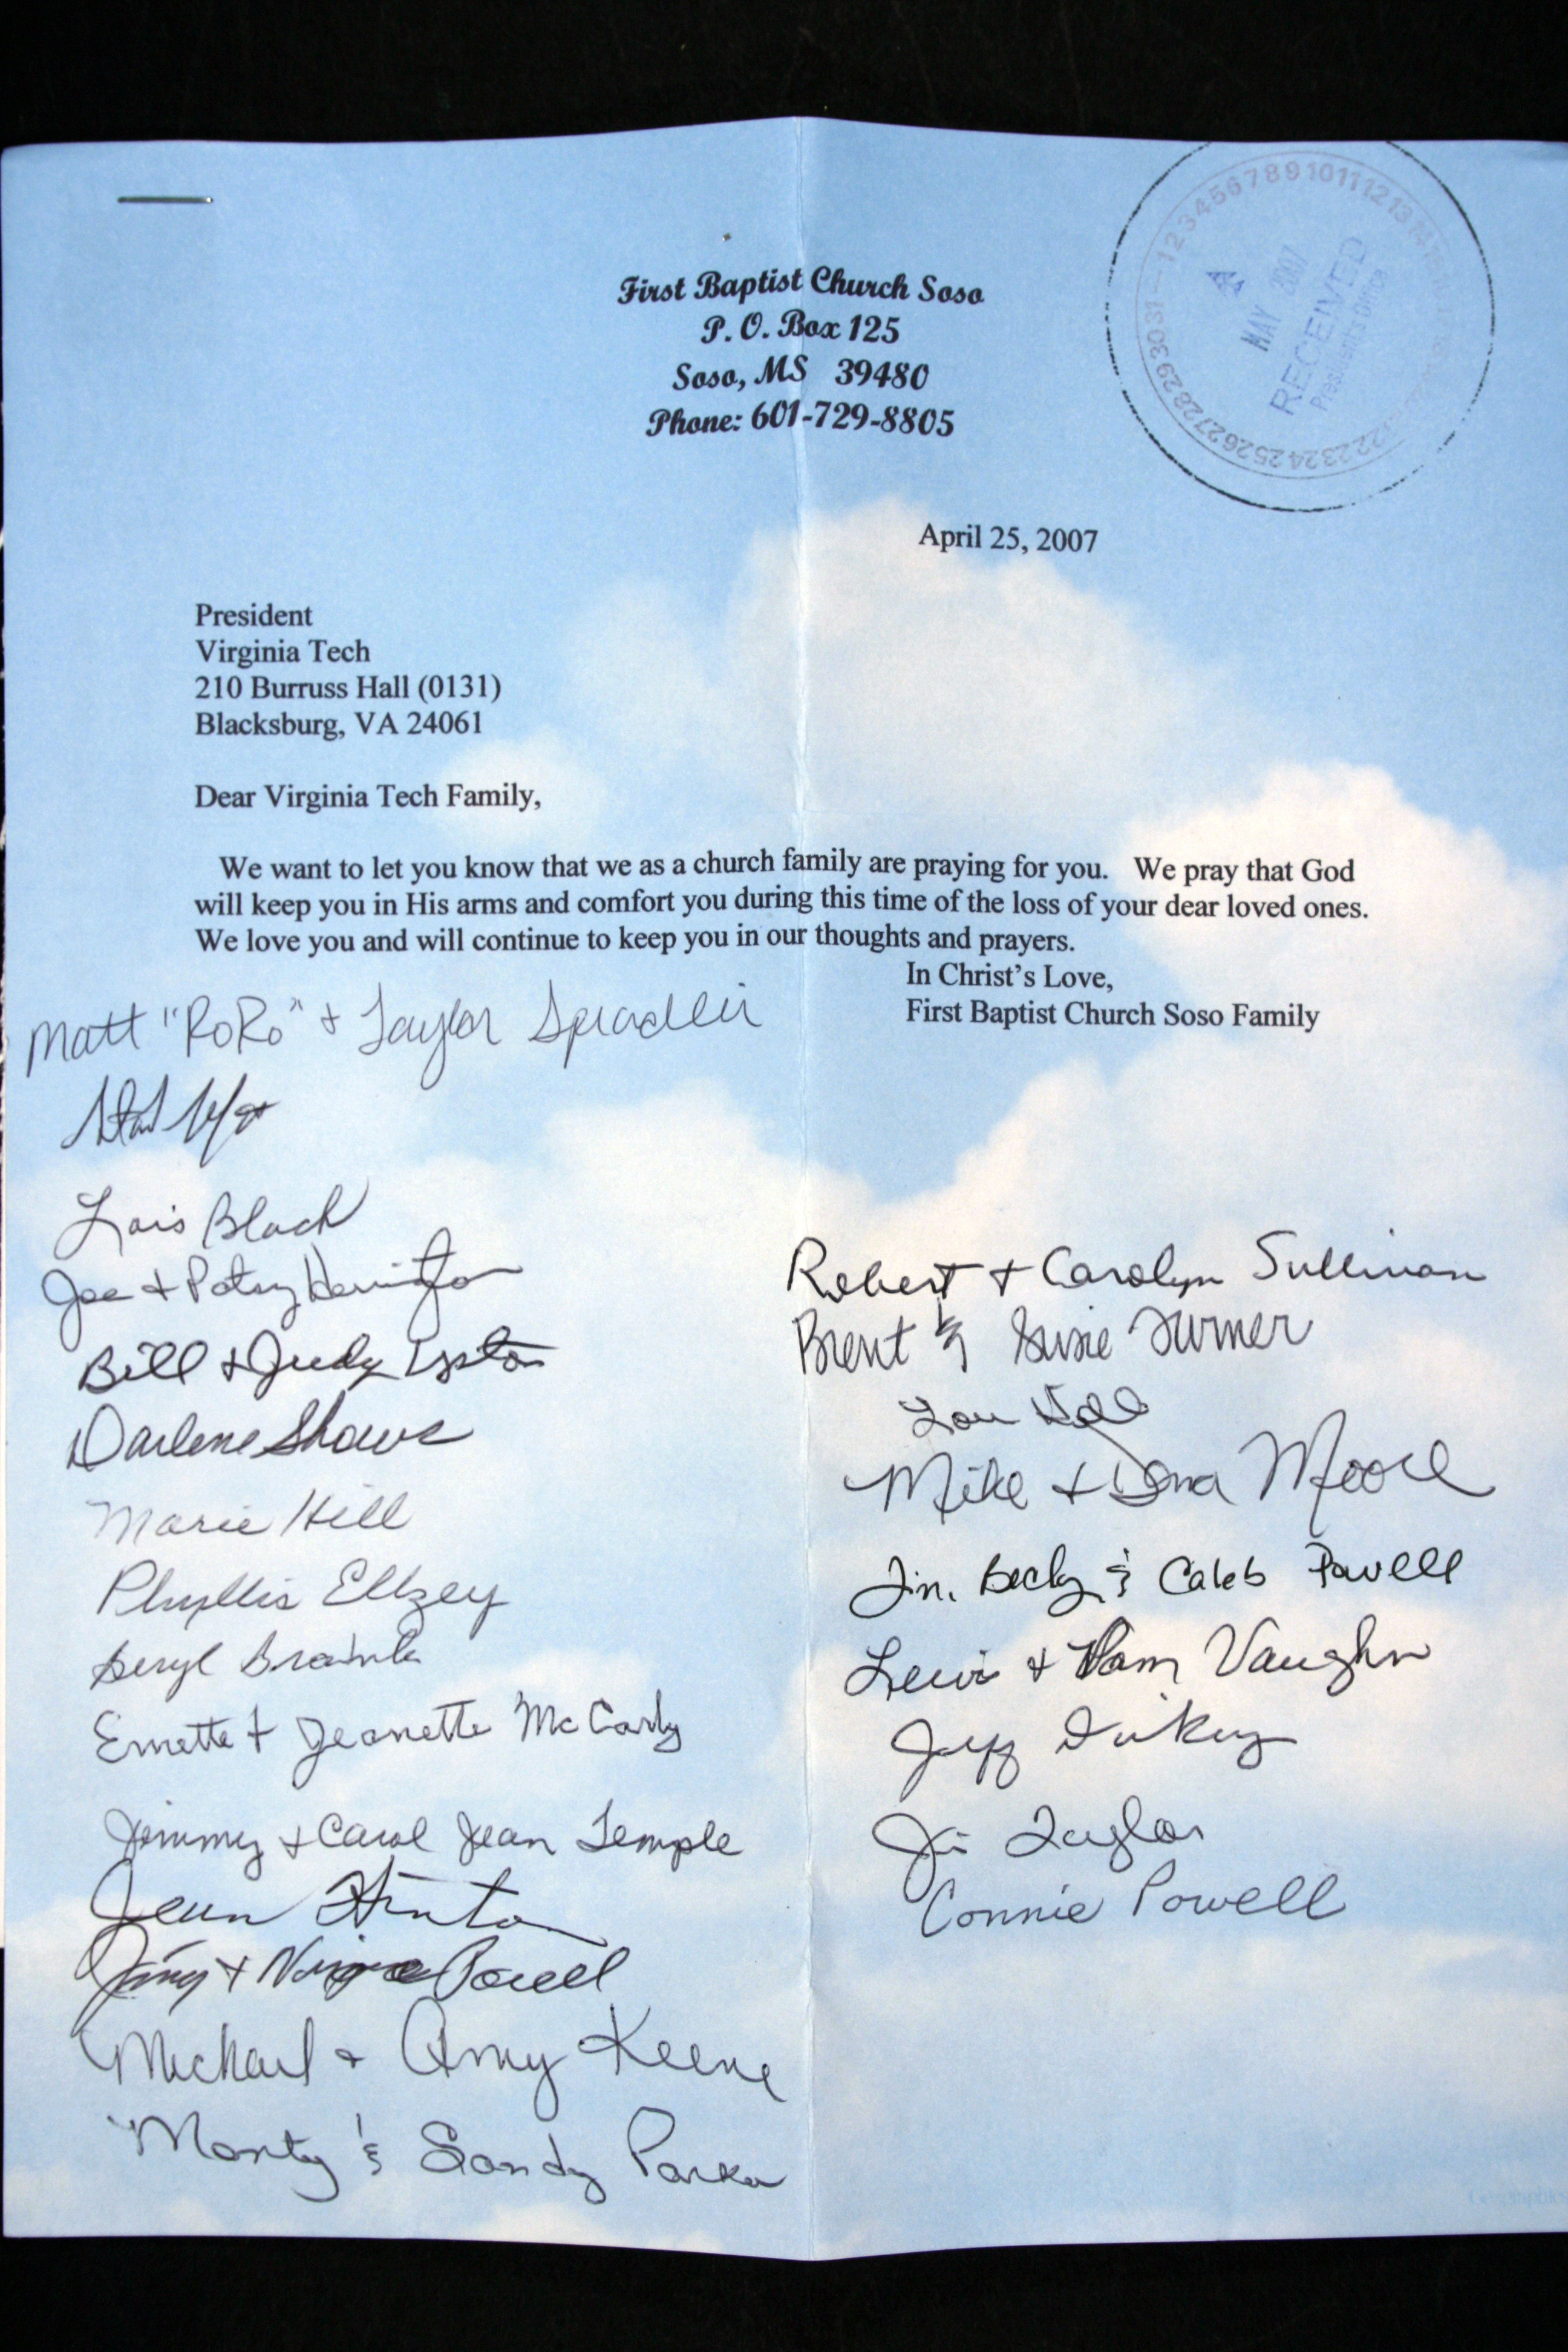 First Baptist Church Soso
P. O. Box 125
Soso, MS 39480
Phone: 601-729-8805
1 2 3 4 5 6 7 8 9 10 11 12 13
22 23 24 25 26 27 28 29 30 31
MAY 2007
RECEIVED
President's Office
April 25, 2007
President
Virginia Tech
210 Burruss Hall (0131)
Blacksburg, VA 24061
Dear Virginia Tech Family,
We want to let you know that we as a church family are praying for you. We pray that God
will keep you in His arms and comfort you during this time of the loss of your dear loved ones.
We love you and will continue to keep you in our thoughts and prayers.
In Christ's Love,
First Baptist Church Soso Family
Matt "RoRo" + Taylor Spradlin
Lois Black
Joe + Patsy
Bill + Judy
Darlene Shows
Marie Hill
Phyllis Ellzey
Beryl
Emette + Jeanette McCarty
Jimmy + Carol Jean Temple
Jean Hinton
+ Powell
Michael + Amy Keene
Monty & Sandy Parker
Robert + Carolyn Sullivan
Brent & Susie Turner
Lou
Mike + Moore
Jim, Becky & Caleb Powell
+ Pam Vaughn
Jeff
Taylor
Connie Powell